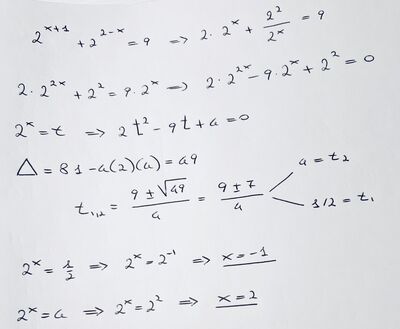 2^{x+1} + 2^{2-x} = 9 ⟹ 2 · 2^x + 2^2/2^x = 9
2 · 2^{2x} + 2^2 = 9 · 2^x ⟹ 2 · 2^{2x} - 9 · 2^x + 2^2 = 0
2^x = t ⟹ 2t^2 - 9t + 4 = 0
Δ = 81 - 4(2)(4) = 49
t_{1,2} = (9 ± √49)/4 = (9 ± 7)/4
4 = t_2
1/2 = t_1
2^x = 1/2 ⟹ 2^x = 2^{-1} ⟹ x = -1
2^x = 4 ⟹ 2^x = 2^2 ⟹ x = 2